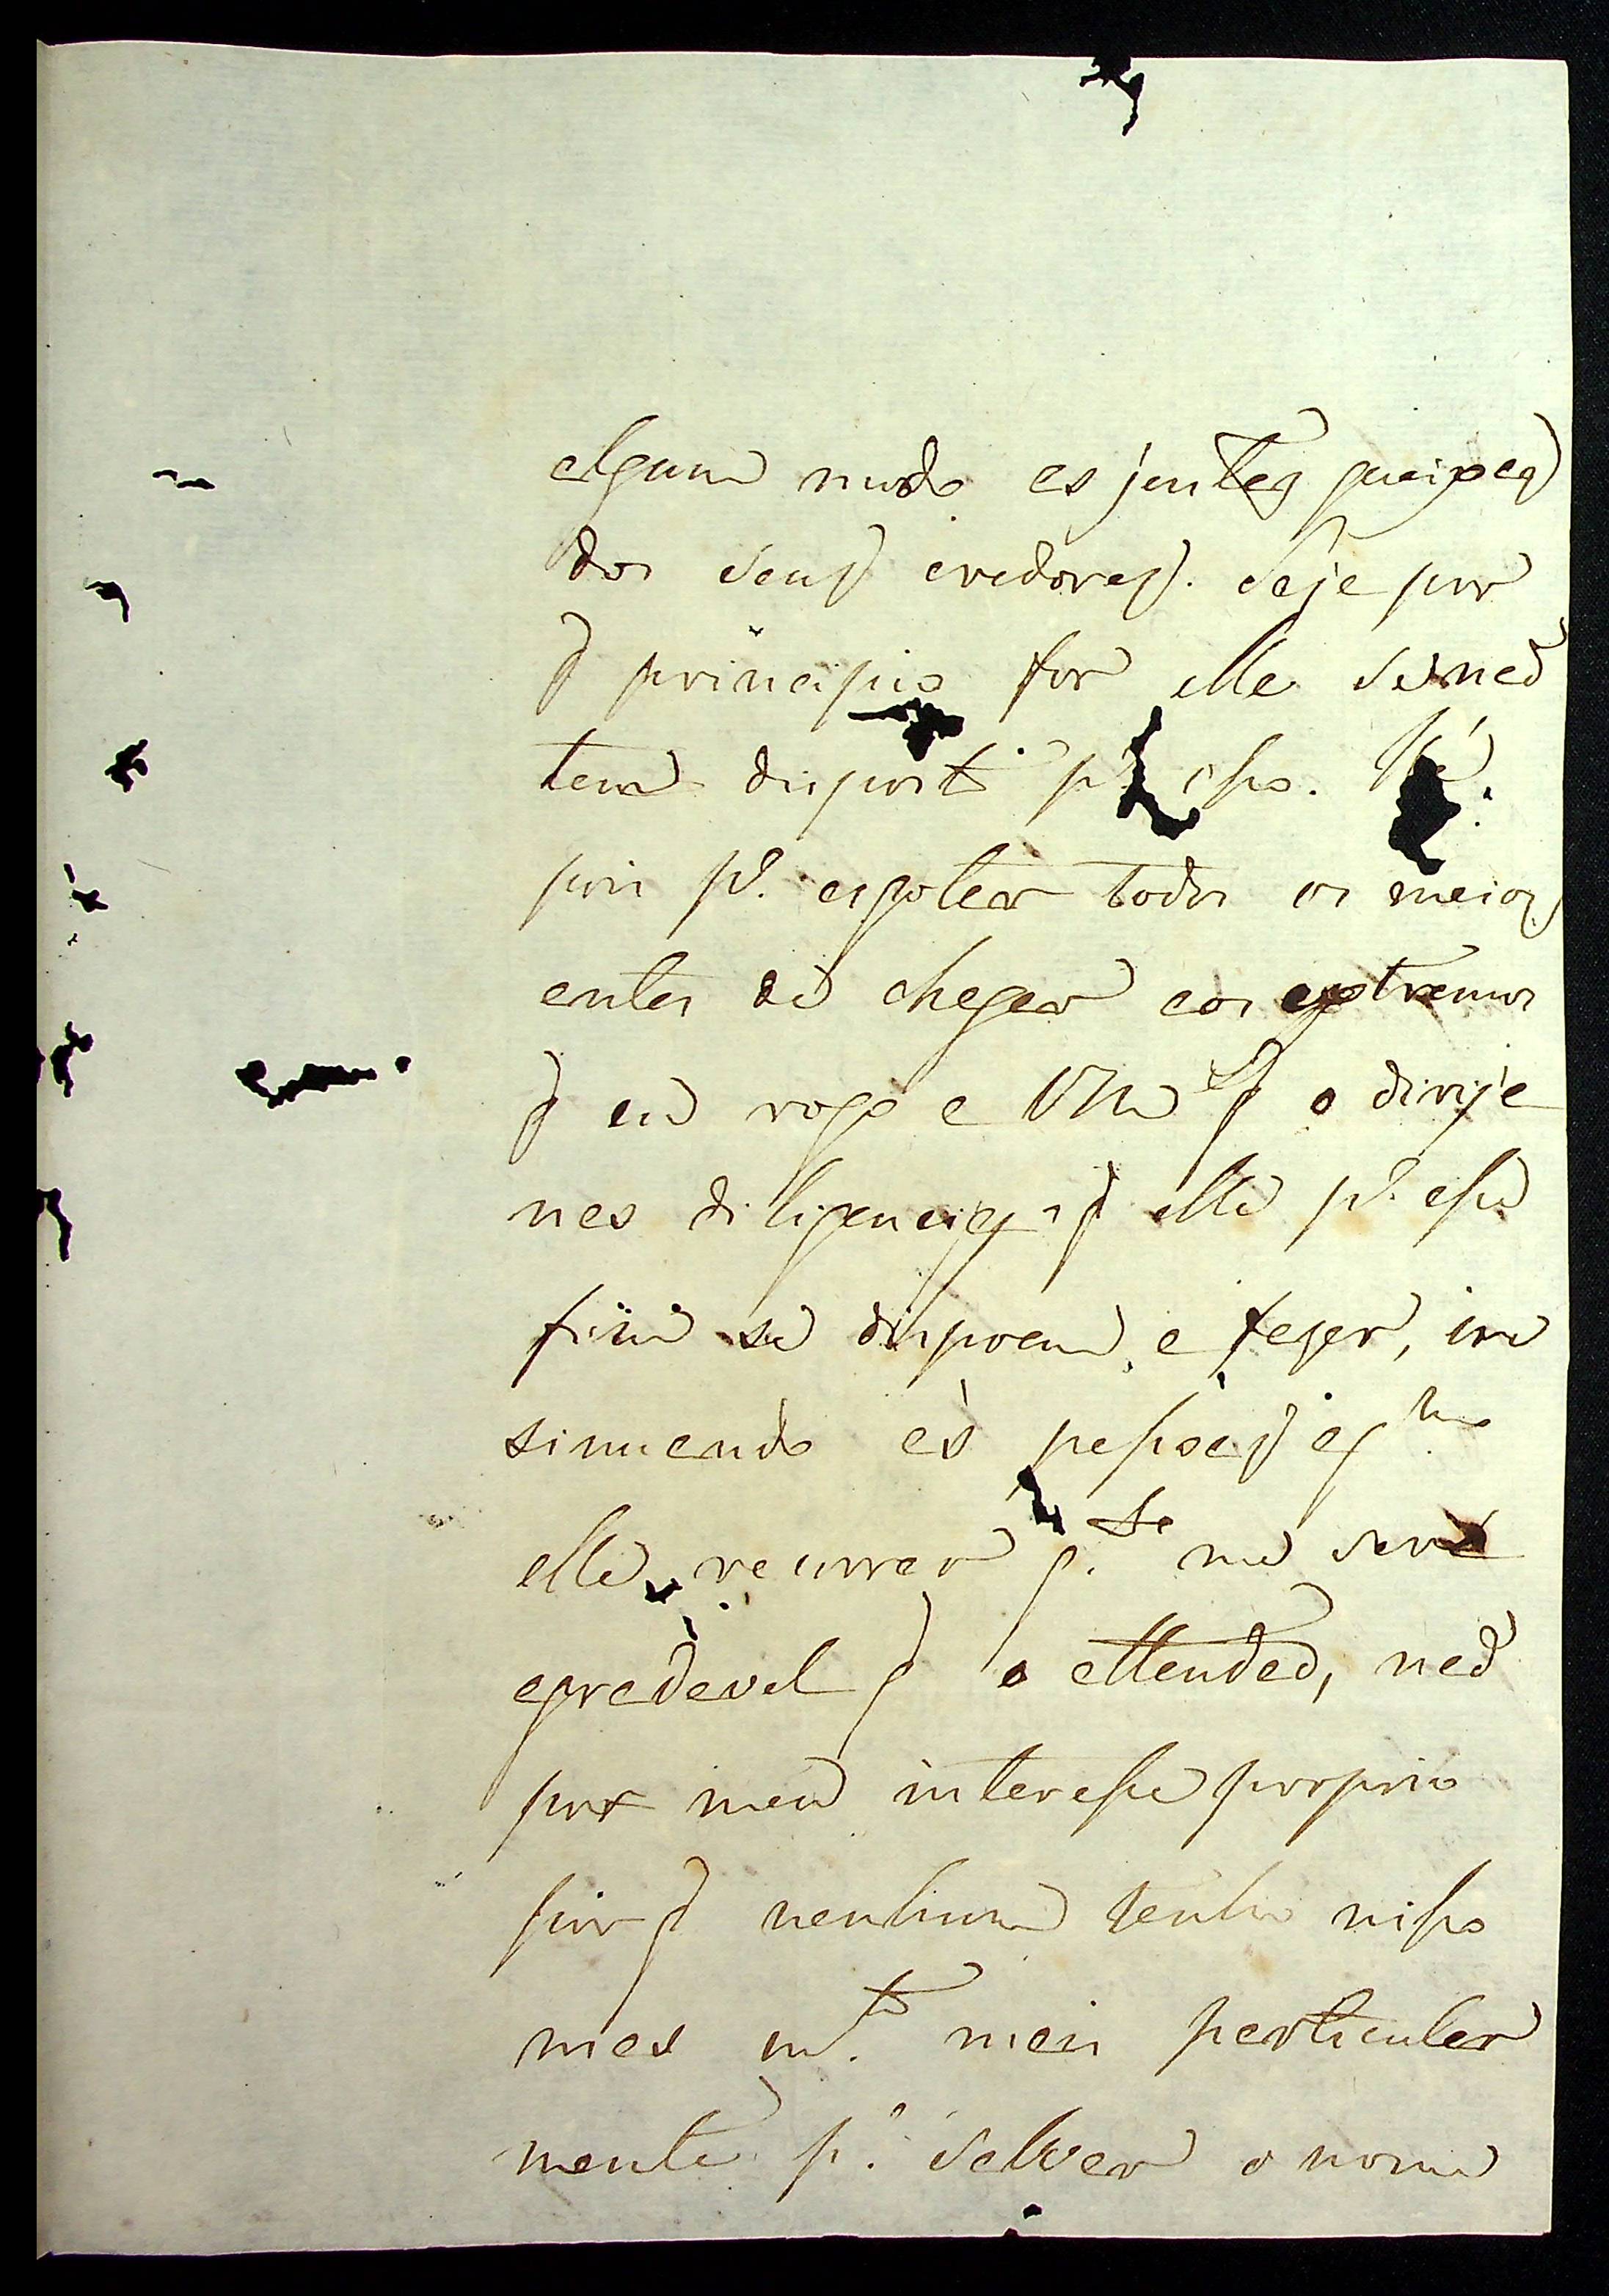 algum modo as justas queixas
dos seus credores. Seja por
q principio for elle se naõ
tem disposto p.ª isso. He
pois p.ª esgotar todos os meios
antes de chegar aos extremos
q eu rogo a VM.ce q o dirija
nas diligencias q elle p.ª esse
fim se dispoem a fazer, in
sinuando as pessoas a q.m
elle recorrer q.to me será
agradavel q o attendaõ, naõ
por meu interesse proprio
porq nenhum tenho nisso
mas m.to mais particular
mente p.ª salvar o nome